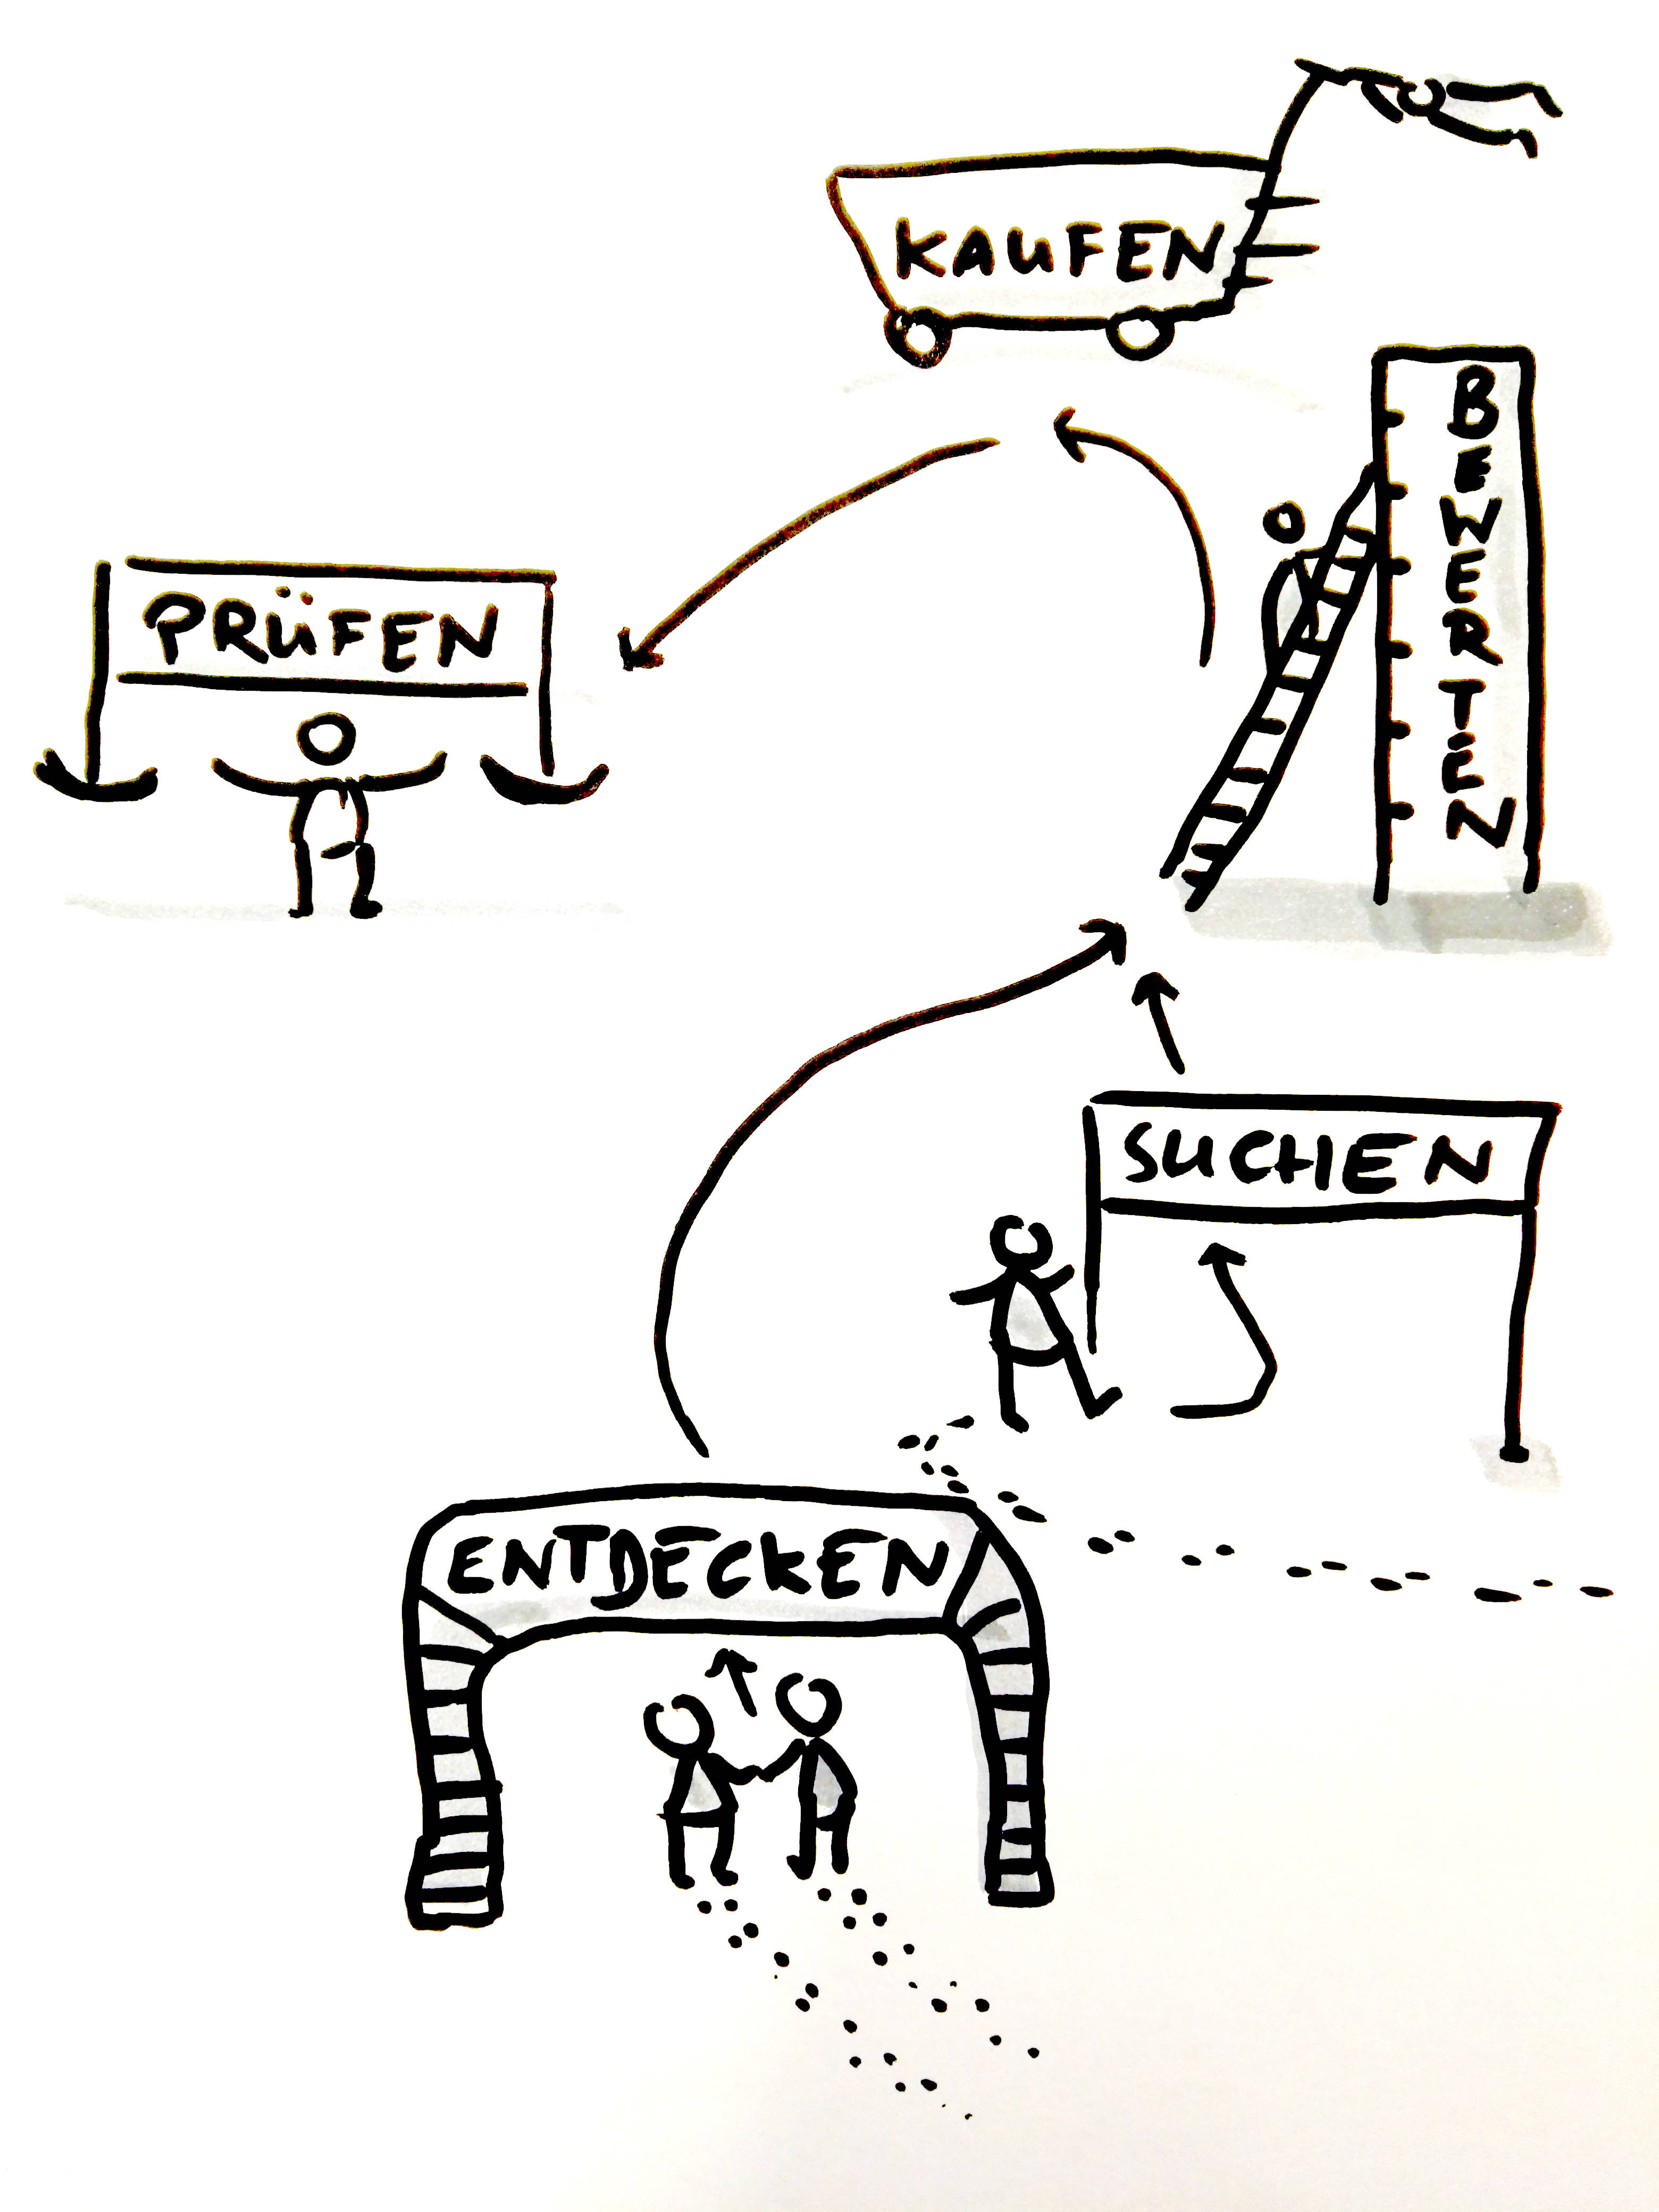 KAUFEN
BEWERTEN
PRÜFEN
SUCHEN
ENTDECKEN